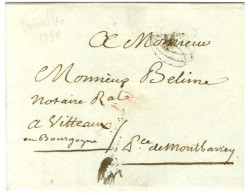 1780
A Monsieur
Monsieur Belime
Notaire Ral
a Vitteaux
en Bourgogne
P.ce de Montbarrey